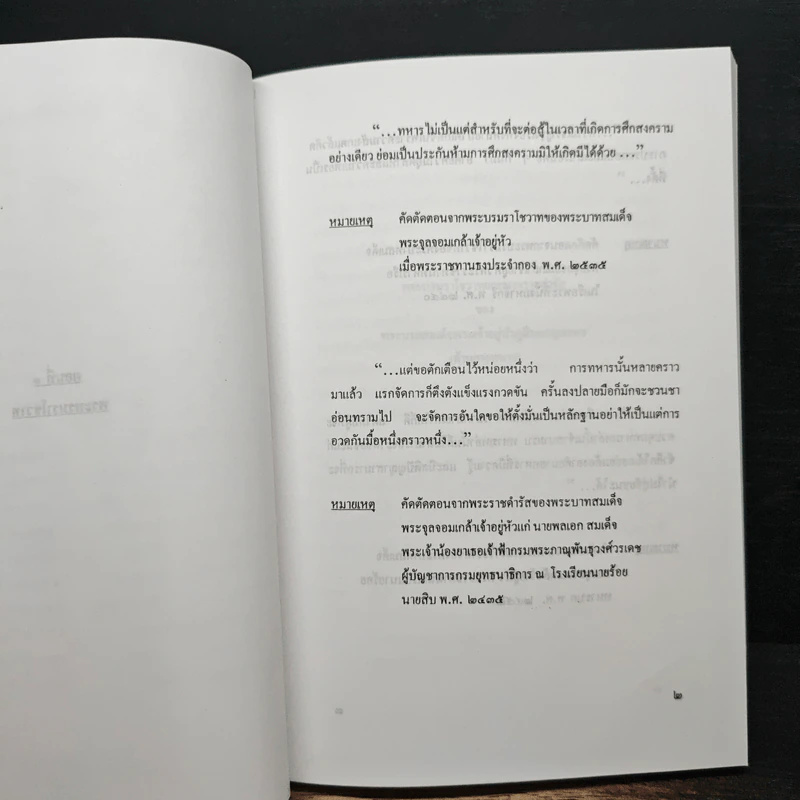 “…ทหารไม่เป็นแต่สำหรับที่จะต่อสู้ในเวลาที่เกิดการศึกสงคราม
อย่างเดียว ย่อมเป็นประกันห้ามการศึกสงครามมิให้เกิดมีได้ด้วย …”
หมายเหตุ คัดตัดตอนจากพระบรมราโชวาทของพระบาทสมเด็จ
พระจุลจอมเกล้าเจ้าอยู่หัว
เมื่อพระราชทานธงประจำกอง พ.ศ. ๒๕๓๕
“…แต่ขอตักเตือนไว้หน่อยหนึ่งว่า การทหารนั้นหลายคราว
มาแล้ว แรกจัดการก็ตึงตังแข็งแรงกวดขัน ครั้นลงปลายมือก็มักจะชวนชา
อ่อนทรามไป จะจัดการอันใดขอให้ตั้งมั่นเป็นหลักฐานอย่าให้เป็นแต่การ
อวดกันมื้อหนึ่งคราวหนึ่ง…”
หมายเหตุ คัดตัดตอนจากพระราชดำรัสของพระบาทสมเด็จ
พระจุลจอมเกล้าเจ้าอยู่หัวแก่ นายพลเอก สมเด็จ
พระเจ้าน้องยาเธอเจ้าฟ้ากรมพระภาณุพันธุวงศ์วรเดช
ผู้บัญชาการกรมยุทธนาธิการ ณ โรงเรียนนายร้อย
นายสิบ พ.ศ. ๒๔๓๕
๒